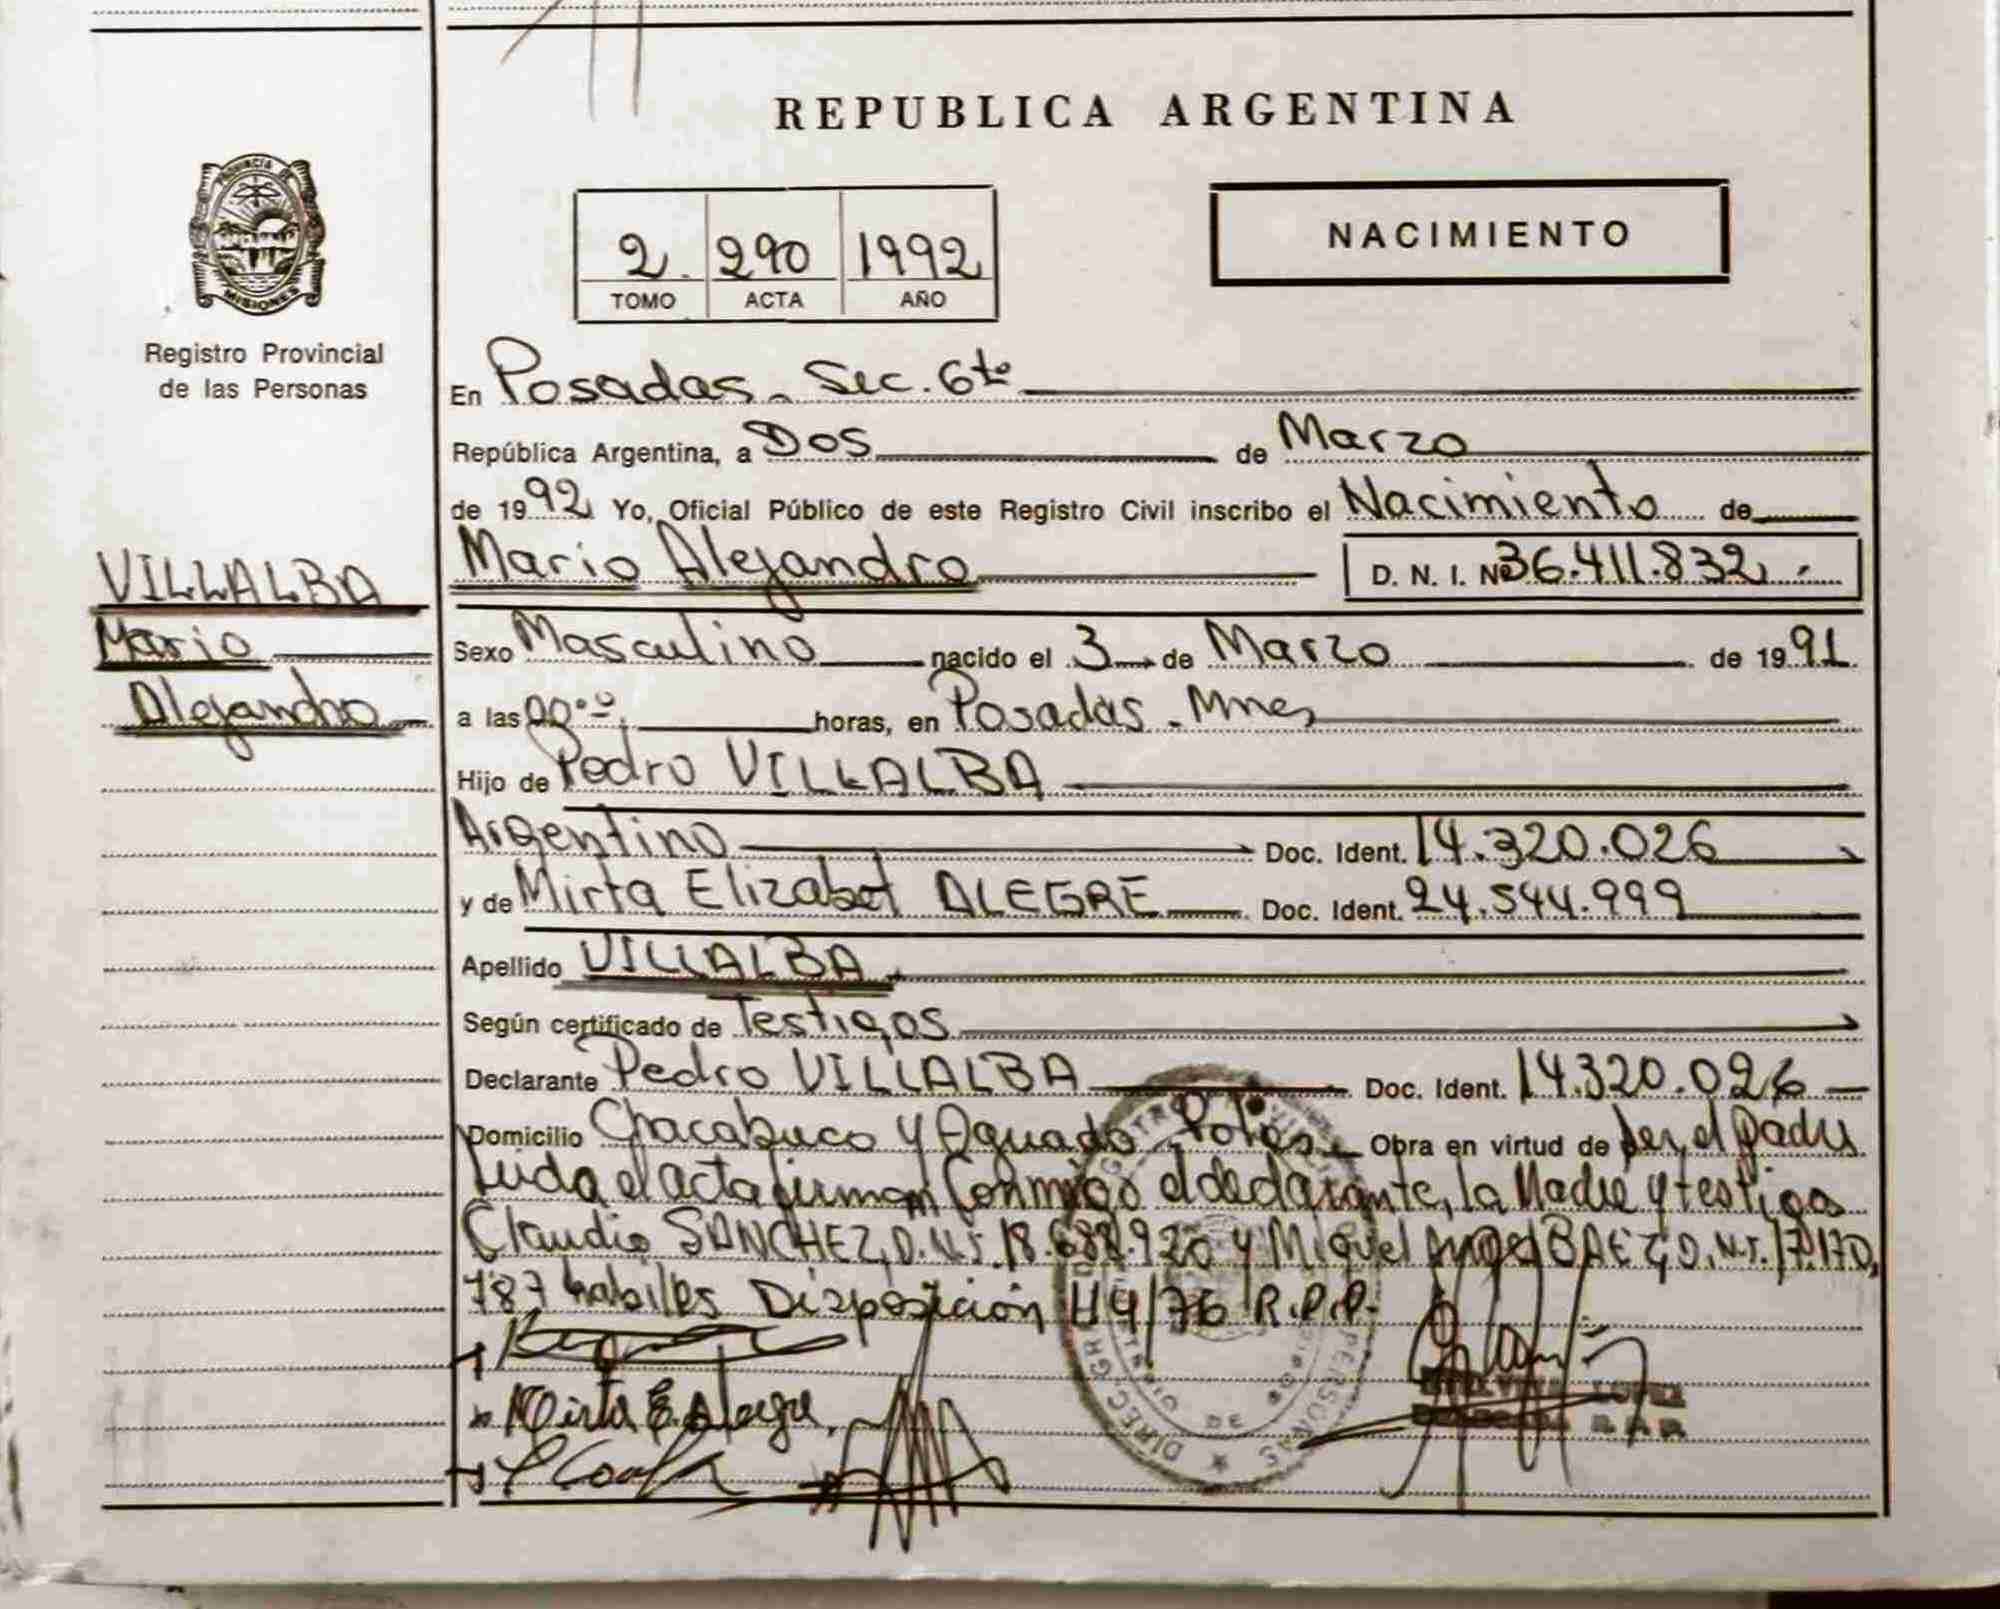 REPUBLICA ARGENTINA
PROVINCIA DE MISIONES
Registro Provincial
de las Personas
2 290 1992
TOMO ACTA AÑO
NACIMIENTO
En Posadas. Sec. 6ta
República Argentina, a Dos de Marzo
de 1992 Yo, Oficial Público de este Registro Civil inscribo el Nacimiento de
VILLALBA
Mario
Alejandro
Mario Alejandro D. N. I. Nº 36.411.832
Sexo Masculino nacido el 3 de Marzo de 1991
a las horas, en Posadas. Mnes
Hijo de Pedro VILLALBA
Argentino Doc. Ident. 14.320.026
y de Mirta Elizabet ALEGRE Doc. Ident. 24.544.999
Apellido VILLALBA
Según certificado de Testigos
Declarante Pedro VILLALBA Doc. Ident. 14.320.026
Domicilio Chacabuco y Aguado Obra en virtud de ser el Padre
Leida el acta firman Conmigo el declarante, la Madre y testigos
Claudio SANCHEZ, D.N.I. 18. y Miguel Angel BAEZ, D.N.I. 17.170.
787 habiles Disposición 114/76 R.P.P.
Mirta E. Alegre